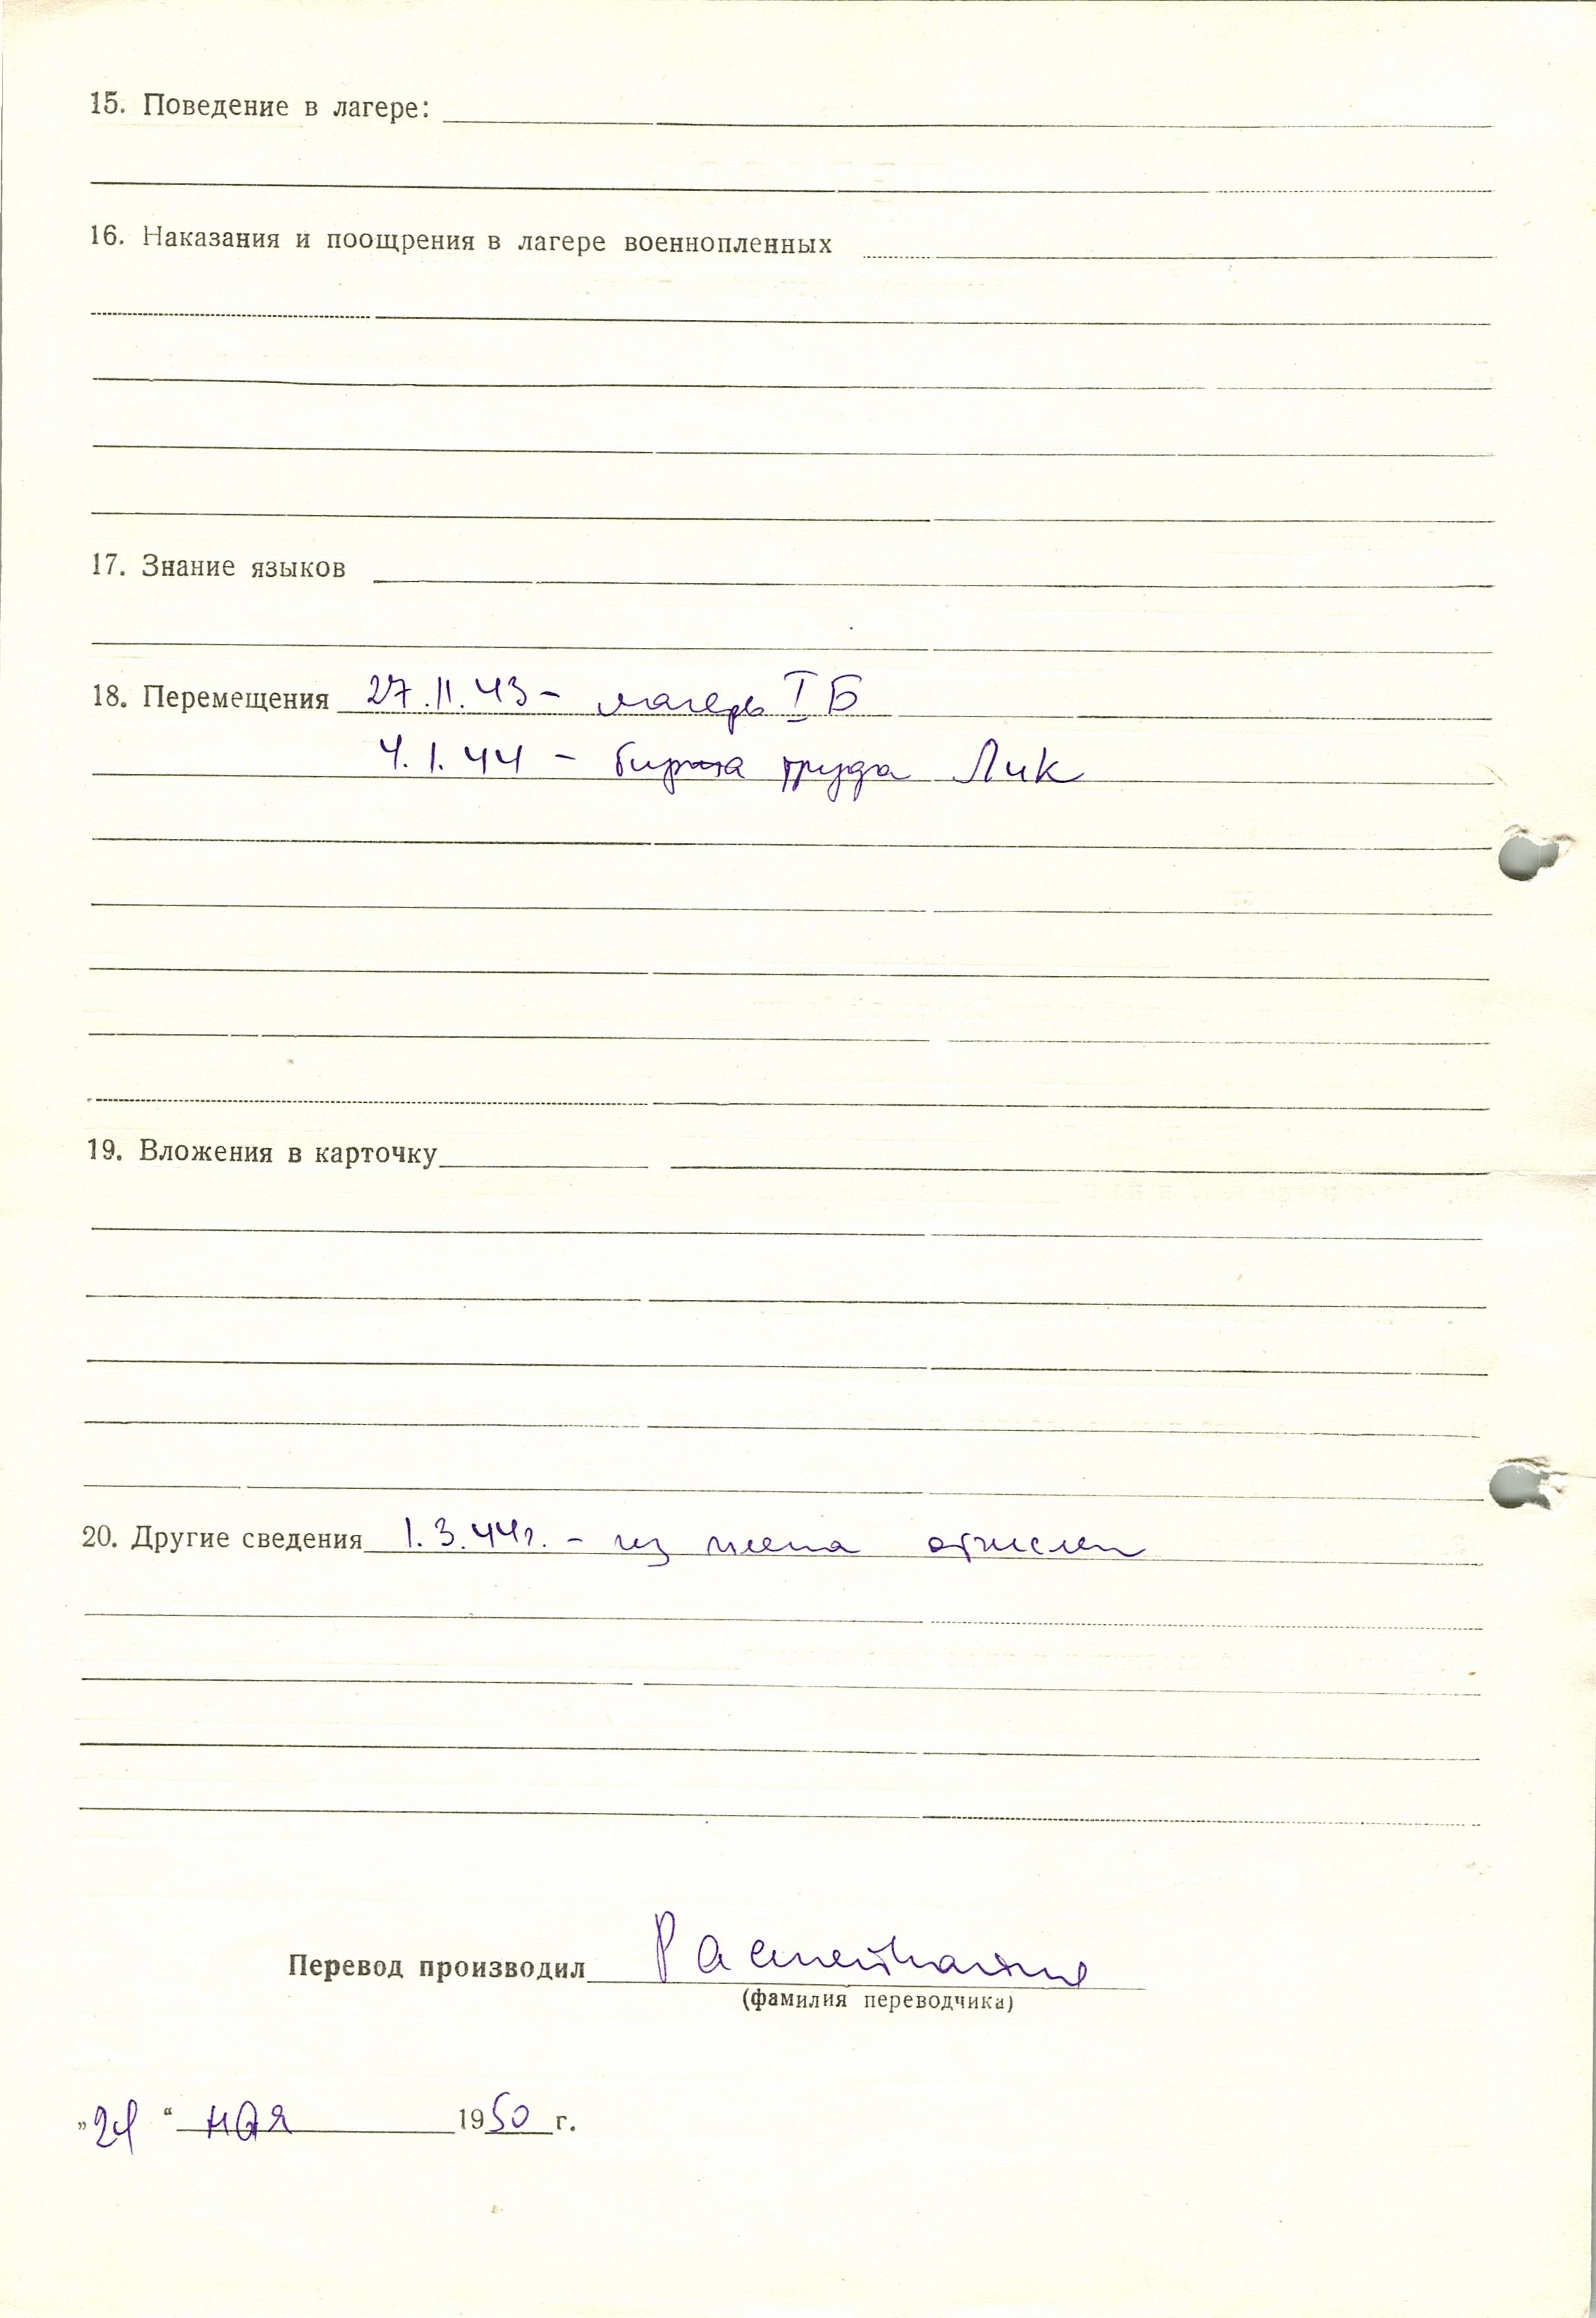 15. Поведение в лагере:
16. Наказания и поощрения в лагере военнопленных
17. Знание языков
18. Перемещения 27.11.43 – лагерь I Б
4.1.44 – биржа труда Лик
19. Вложения в карточку
20. Другие сведения 1.3.44г. – из плена отчислен
Перевод производил
(фамилия переводчика)
" " мая 1950 г.